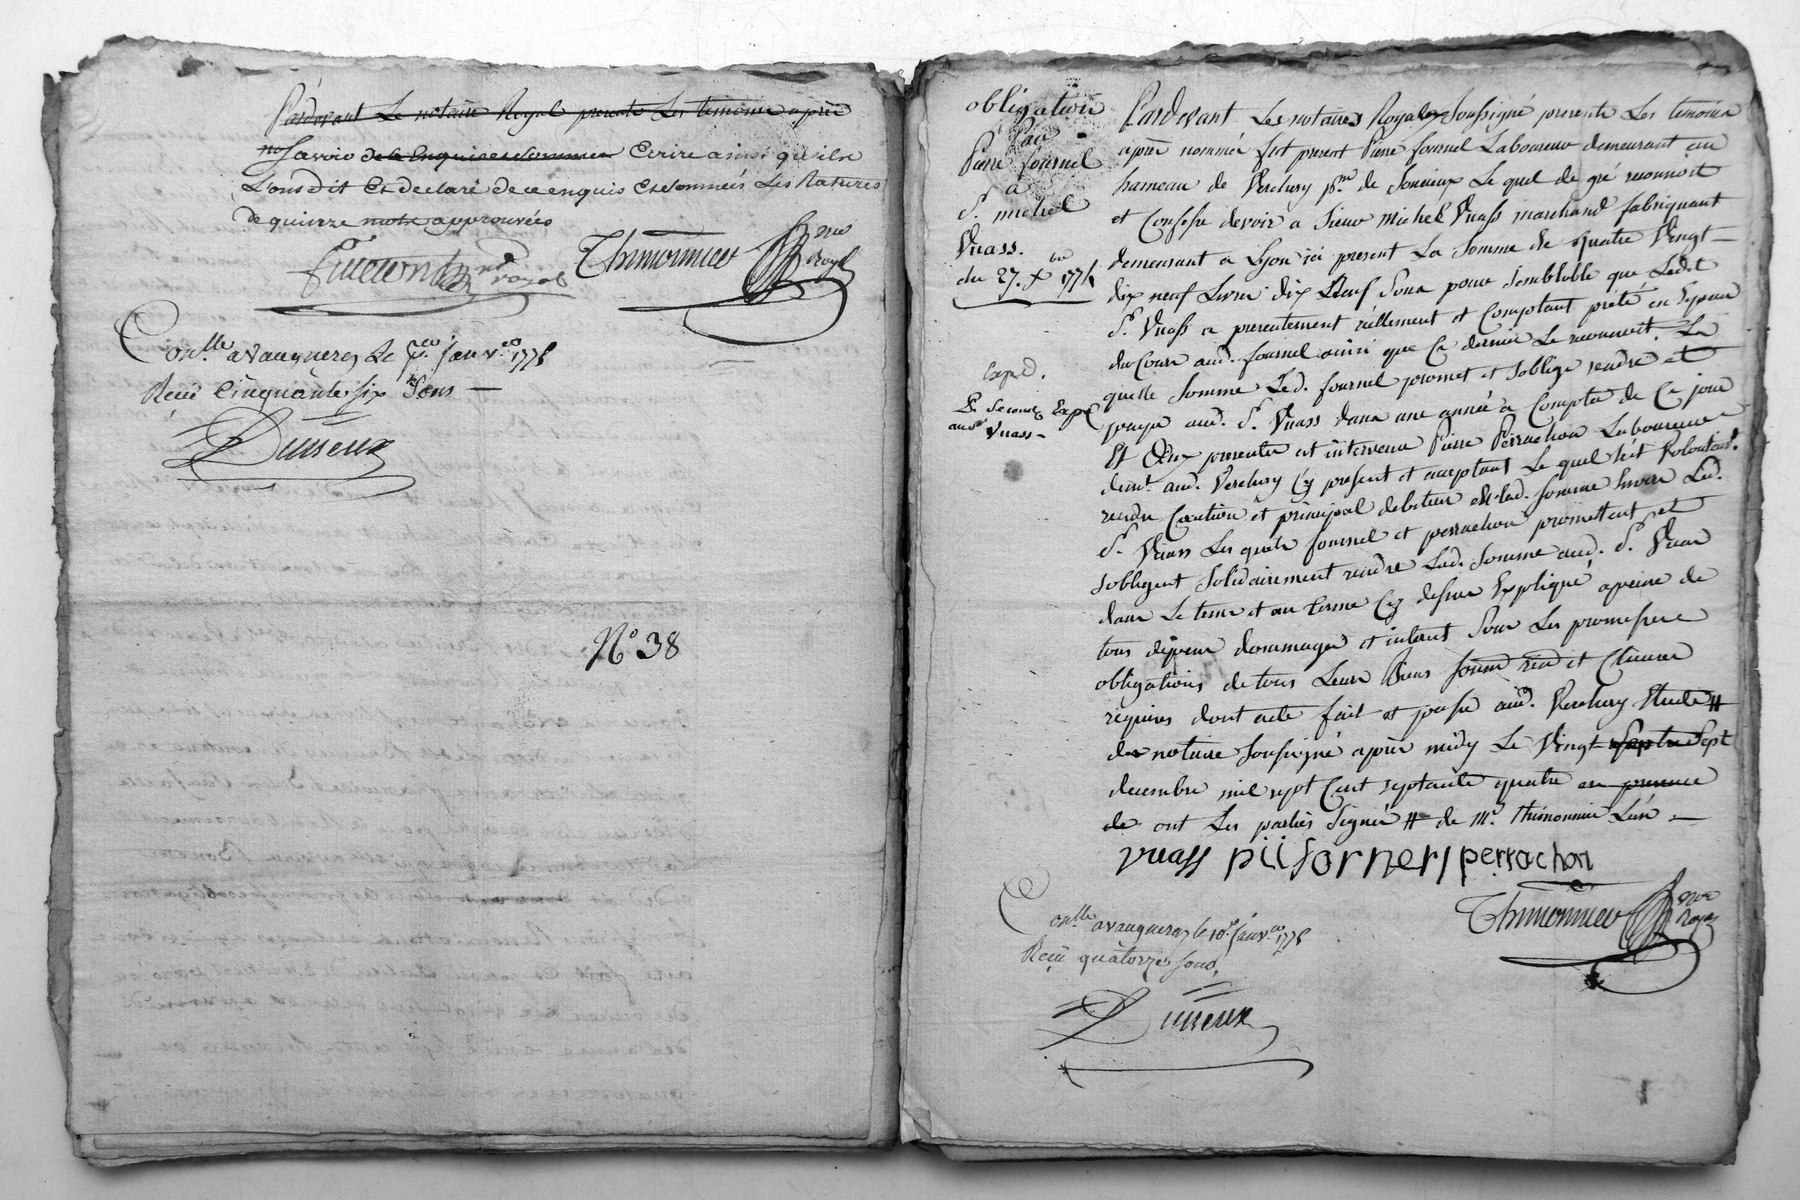 Pardevant Le notaire Royal presents Les temoins après
no Savoir de ce Enquis et sommés Ecrire ainsi qu'ils
L'ons dit Et declaré de ce enquis et sommés Les Ratures
de quinze mots approuvées
nre royal
Thimonnier nre Royal
Conlle a vaugneray Le janv.er 1775
Reçu Cinquante six Sous
Dusseux
N° 38
obligation
Par
Pierre fournel
a
S.r michel
Vuass.
du 27. Xbre 1774
Exped.
Et Seconde Exp.
aud. Vuass
Pardevant Les notaires Royaux Soussigné presents Les temoins
après nommés fut present Pierre fournel Laboureur demeurant au
hameau de Verchery p.sse de Soucieux Le quel de gré reconnoit
et Confesse devoir a Sieur michel Vuass marchand fabriquant
demeurant a Lyon ici present La Somme de quatre Vingt
dix neuf Livres dix Neuf Sous pour Semblable que Ledit
S.r Vuass a presentement reellement et Comptant prêté en Especes
du Cours aud. fournel ainsi que Ce dernier Le reconnoit. La
quelle Somme Led. fournel promet et Soblige rendre et
payer aud. S.r Vuass dans une année a Compter de Ce jour
Et Aux presentes est intervenu Pierre Perrachon Laboureur
dem.t aud. Verchery Cy present et acceptant Le quel s'est Volontair.t
rendu Caution et principal debiteur de lad. Somme Envers Led.
S.r Vuass Les quels fournel et perrachon promettent et
sobligent Solidairement rendre Lad. Somme aud. S.r Vuass
dans Le tems et au terme Cy dessus Expliqué apeine de
tous depens dommages et interets Sous Les promesses
obligations de tous Leurs Biens et Clauses
requises dont acte fait et passé aud. Verchery Etude #
du notaire Soussigné après midy Le Vingt Septre Sept
decembre mil sept Cent septante quatre en presence
de ont Les parties Signé # de M.e thimonnier L'un
vuass pii fornerl perrachon
Thimonnier nre Royal
Conlle a vaugneray le 10.e janv.er 1775
Reçu quatorze Sous.
Dusseux